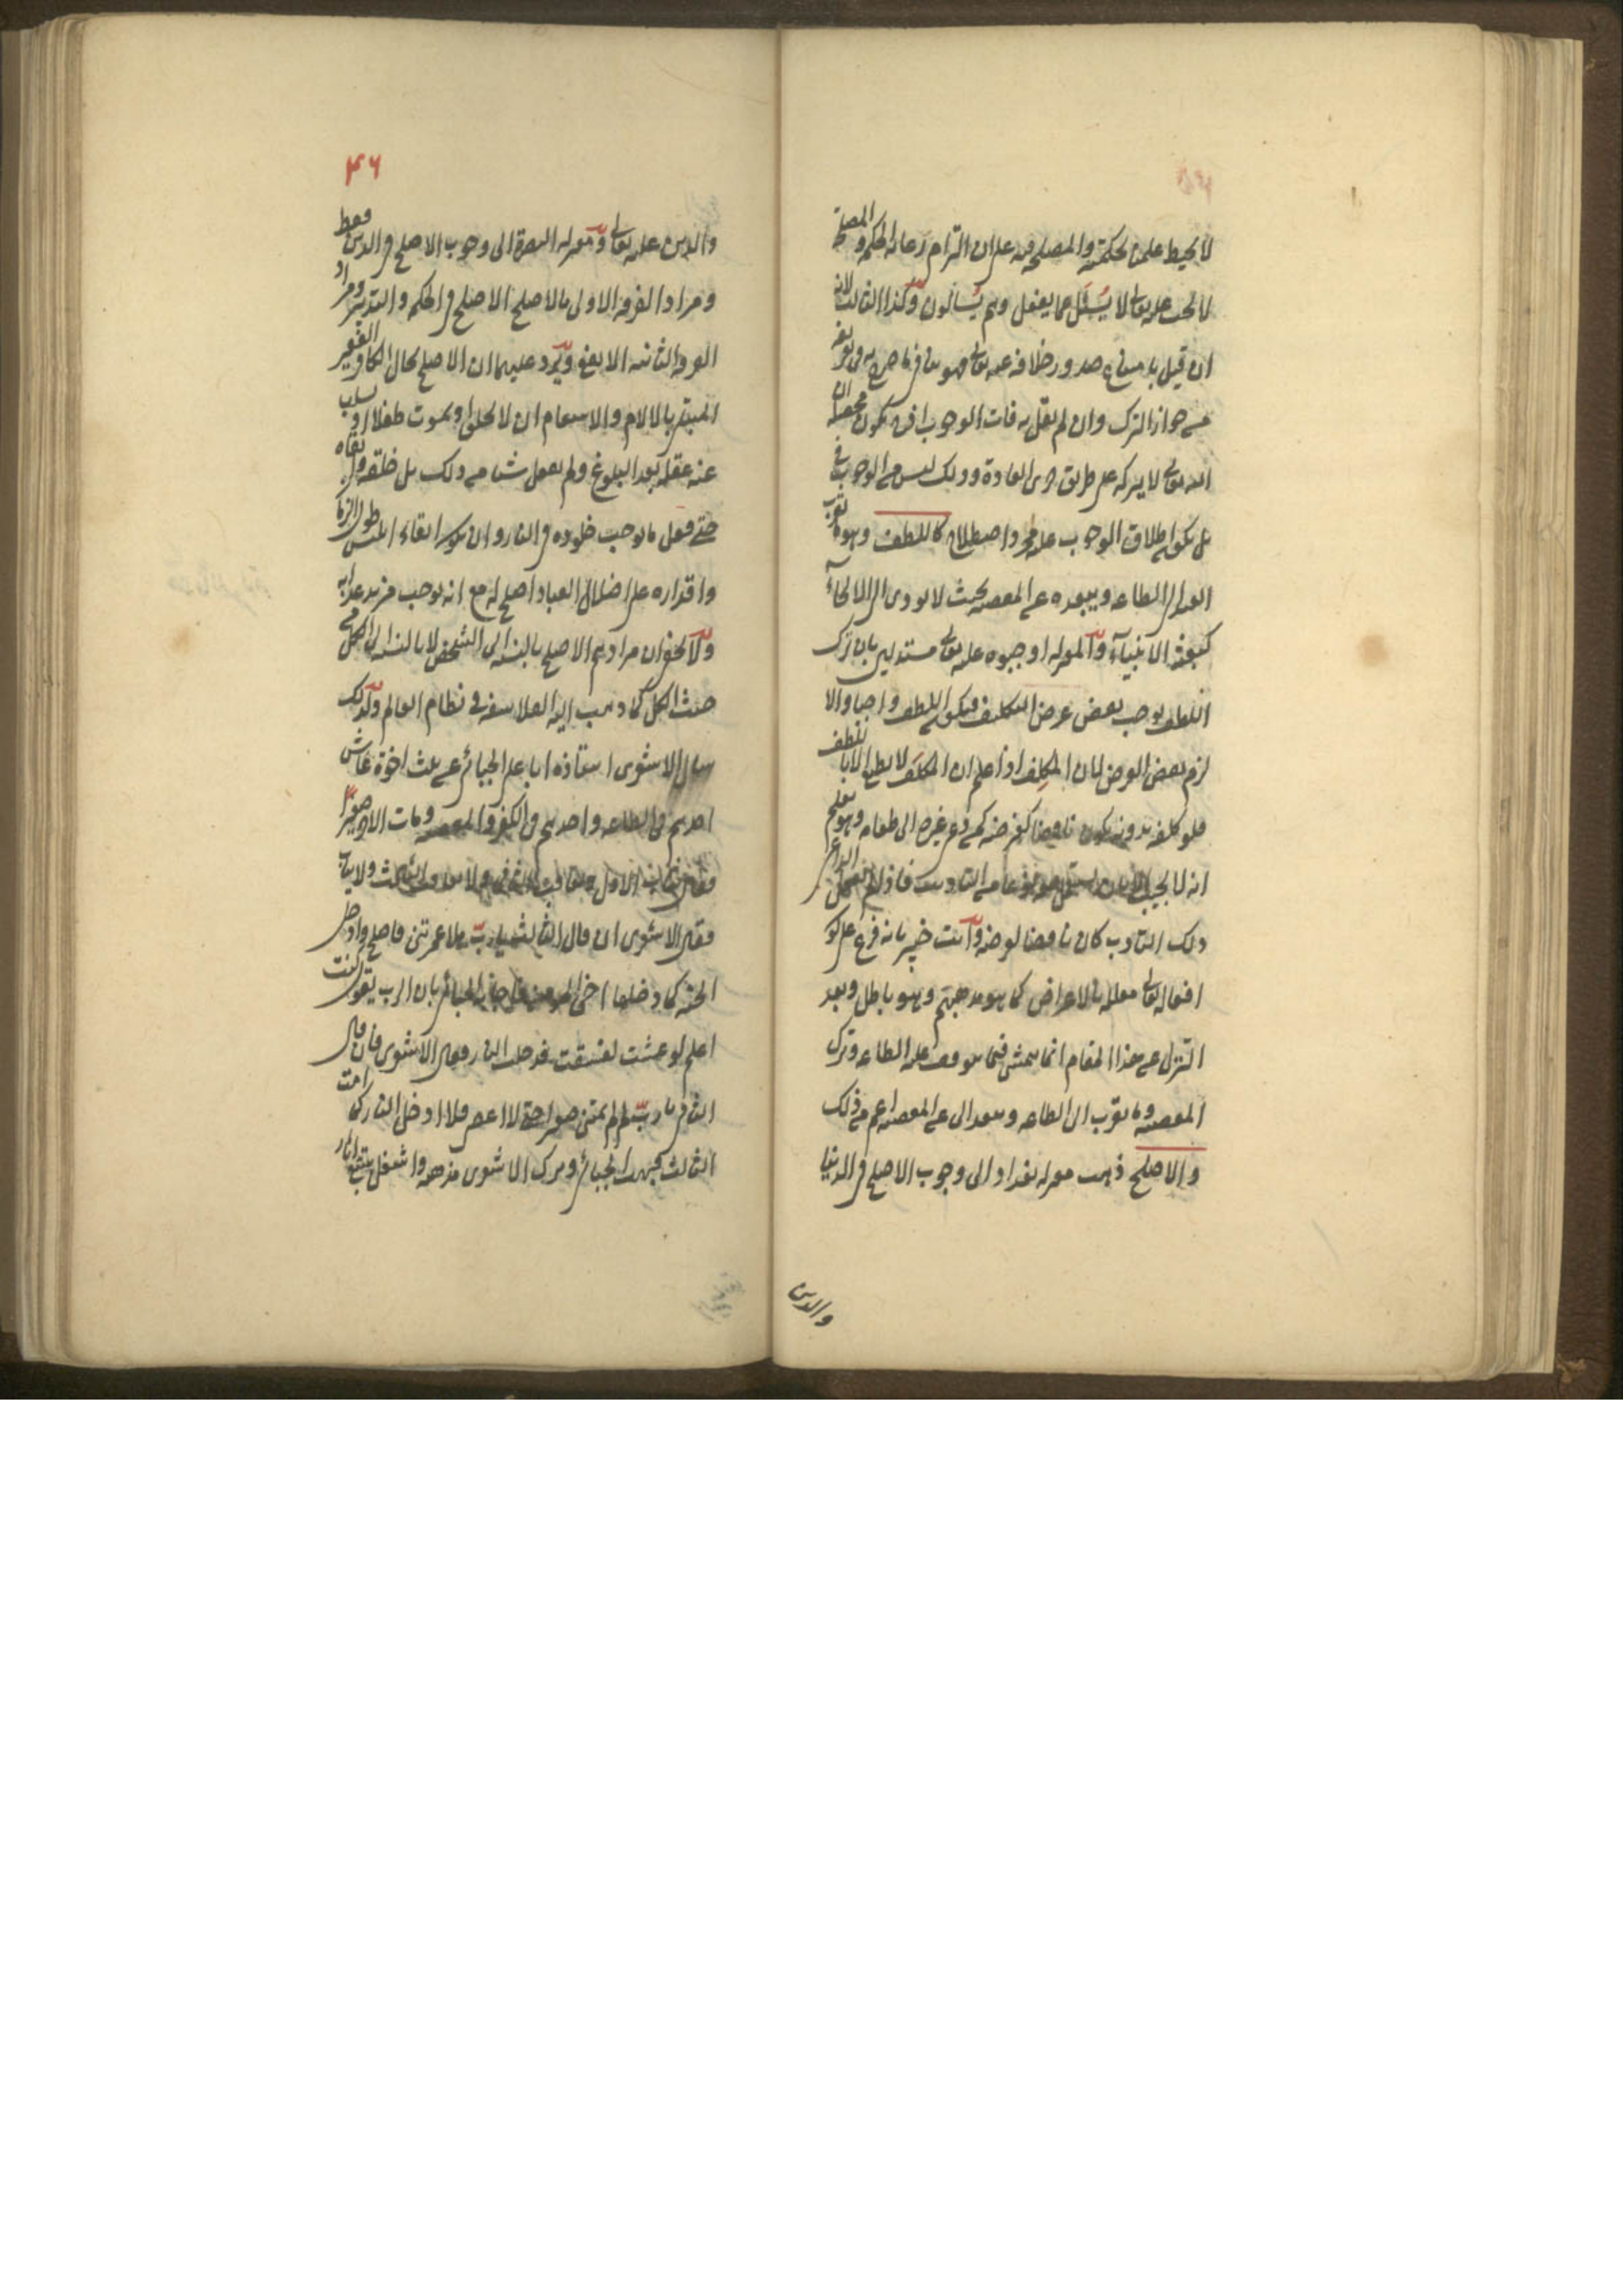 لا يحيط علمنا بحكمته والمصلحة فيه على ان التزام رعاية الحكمة والمصلحة
لا يجب عليه تعالى لا يُسئَل عما يفعل وهم يُسألون وكذا الثالث لانه
ان قيل بامتناع صدور خلافه عنه تعالى فهو ينافي ما صرح به في تعريفه
من جواز الترك وان لم يقل به فات الوجوب اذ يكون محصله ان
الله تعالى لا يتركه على طريق جرى العادة وذلك ليس من الوجوب في
بل يكون اطلاق الوجوب عليه مجرد اصطلاح كاللطف وهو ما يقرب
العبد الى الطاعة ويبعده عن المعصية بحيث لا يودى الى الالجآء
كبعثة الانبيآء والمعتزلة اوجبوه عليه تعالى مستدلين بان ترك
اللطف يوجب نقض غرض التكليف فيكون اللطف واجبا والا
لزم نقض الغرض لان المكلِف اذا علم ان المكلَف لا يطيع الا باللطف
فلو كلفه بدونه يكون ناقضا لغرضه كمن دعى غيره الى طعام وهو يعلم
انه لا يجيبه الا بان يستعمل معه نوعا من التادب فاذا لم يفعل الداعى
ذلك التادب كان ناقضا لغرضه وانت خبير بانه فرع على كون
افعاله تعالى معللة بالاغراض كما هو مذهبهم وهو باطل وبعد
التنزل عن هذا المقام انما يتمشى فيما يتوقف عليه الطاعة وترك
المعصية وما يقرب الى الطاعة ويبعد عن المعصية اعم من ذلك
والاصلح ذهبت معتزلة بغداد الى وجوب الاصلح فى الدنيا
والدين
٤٦
والدين عليه تعالى ومعتزلة البصرة الى وجوب الاصلح فى الدين فقط
ومراد الفرقة الاولى بالاصلح الاصلح فى الحكمة والتدبير ومراد
الفرقة الثانية الانفع ويَرِد عليهما ان الاصلح بحال الكافر الفقير
المبتلى بالآلام والاسقام ان لا يخلق او يموت طفلا او يسلب
عنه عقله بعد البلوغ ولم يفعل شيئا من ذلك بل خلقه وابقاه
حتى فعل ما يوجب خلوده فى النار وان يكون ابقاء ابليس طول الزمان
واقداره على اضلال العباد اصلح له مع انه يوجب مزيد عذابه
ولا يخفى ان مرادهم الاصلح بالنسبة الى الشخص لا بالنسبة الى الكل من
حيث الكل كما ذهب اليه الفلاسفة فى نظام العالم ولذلك
سال الاشعرى استاذه ابا على الجبائى عن ثلث اخوة عاش
احدهم فى الطاعة واحدهم فى الكفر والمعصية ومات الاخر صغيرا
فقال يثاب الاول ويعاقب الثانى ولا يعاقب الثالث ولا يثاب
فقال الاشعرى ان قال الثالث يا ربّ هلا عمرتنى فاصلح وادخل
الجنة كما دخلها اخى المومن فاجاب الجبائى بان الرب يقول كنت
اعلم لو عشت لفسقت فدخلت النار فقال الاشعرى فان قال
الثانى يا ربّ لم لم تمتنى صغيرا حتى لا اعصى فلا ادخل النار كما امت
الثالث فبهت الجبائى وترك الاشعرى مذهبه واشتغل بتتبع اثار